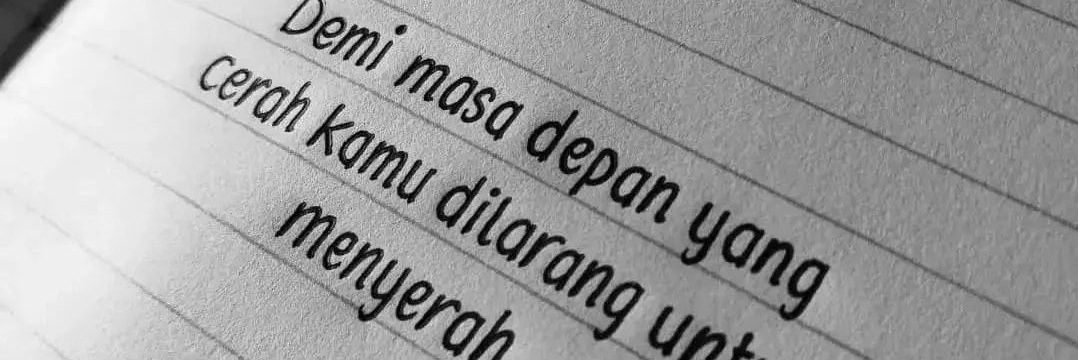 Demi masa depan yang
cerah kamu dilarang
menyerah